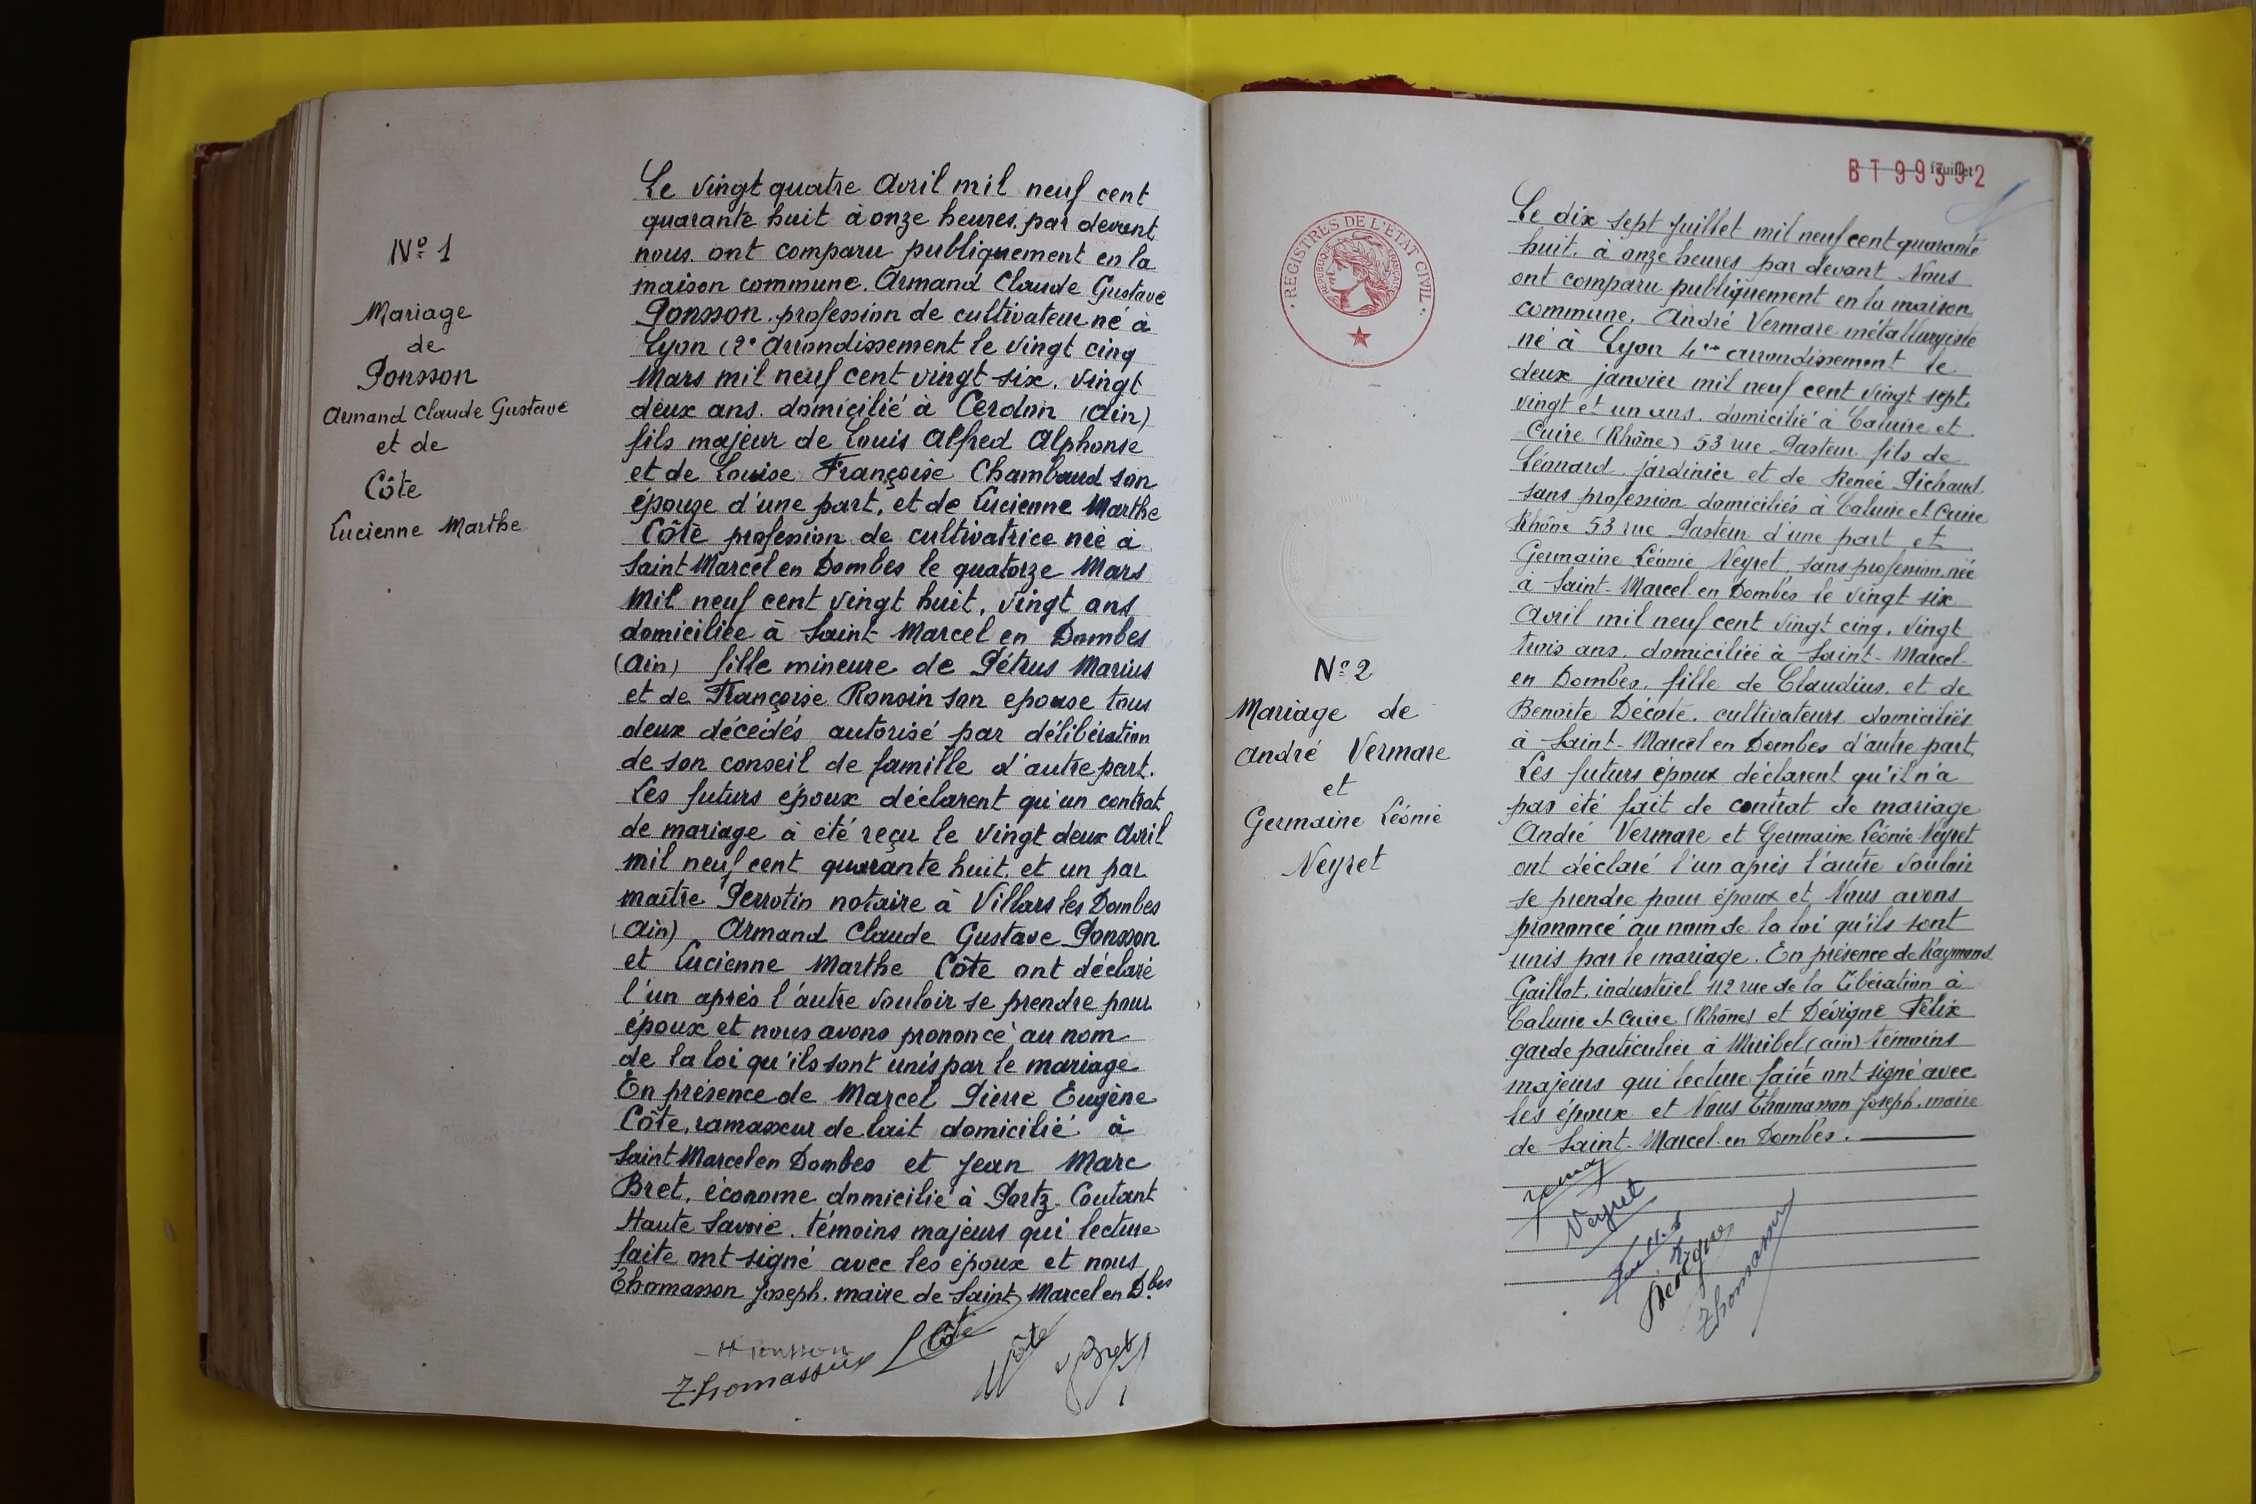 N° 1
Mariage
de
Ponsson
Armand Claude Gustave
et de
Côte
Lucienne Marthe
Le vingt quatre Avril mil neuf cent
quarante huit à onze heures. par devant
nous. ont comparu publiquement en la
maison commune. Armand Claude Gustave
Ponsson. profession de cultivateur né à
Lyon (2e Arrondissement le vingt cinq
Mars mil neuf cent vingt six. vingt
deux ans. domicilié à Cerdon (Ain)
fils majeur de Louis Alfred Alphonse
et de Louise Françoise Chambaud son
épouse d'une part, et de Lucienne Marthe
Côte profession de cultivatrice née a
Saint Marcel en Dombes le quatorze Mars
Mil neuf cent vingt huit, vingt ans
domiciliée à Saint Marcel en Dombes
(Ain) fille mineure de Pétrus Marius
et de Françoise Ronsin son epouse tous
deux décédés autorisé par délibération
de son conseil de famille d'autre part.
Les futurs époux déclarent qu'un contrat
de mariage à été reçu le vingt deux Avril
mil neuf cent quarante huit. et un par
maître Perrotin notaire à Villars les Dombes
(Ain) Armand Claude Gustave Ponsson
et Lucienne Marthe Côte ont déclaré
l'un après l'autre vouloir se prendre pour
époux et nous avons prononcé au nom
de la loi qu'ils sont unis par le mariage
En présence de Marcel Pierre Eugène
Côte, ramasseur de lait domicilié à
Saint Marcel en Dombes et Jean Marc
Bret, économe domicilié à Portz-Coutant
Haute Savoie. témoins majeurs qui lecture
faite ont signé avec les époux et nous
Thomasson Joseph. maire de Saint Marcel en D.bes
Ponsson
Thomasson
Côte
Côte
Bret
BT99392
feuillet
REGISTRES DE L'ETAT CIVIL
REPUBLIQUE FRANÇAISE
N° 2
Mariage de
André Vermare
et
Germaine Léonie
Neyret
Le dix sept Juillet mil neuf cent quarante
huit. à onze heures par devant Nous
ont comparu publiquement en la maison
commune, André Vermare métallurgiste
né à Lyon 4me arrondissement le
deux janvier mil neuf cent vingt sept,
vingt et un ans. domicilié à Caluire et
Cuire (Rhône) 53 rue Pasteur fils de
Léonard jardinier et de Renée Pichaud
sans profession domiciliés à Caluire et Cuire
Rhône 53 rue Pasteur d'une part et
Germaine Léonie Neyret, sans profession. née
à Saint-Marcel en Dombes le vingt six
Avril mil neuf cent vingt cinq, vingt
trois ans. domiciliée à Saint-Marcel-
en Dombes. fille de Claudius. et de
Benoite Décote. cultivateurs domiciliés
à Saint-Marcel en Dombes d'autre part,
Les futurs époux déclarent qu'il n'a
pas été fait de contrat de mariage
André Vermare et Germaine Léonie Neyret
ont déclaré l'un après l'autre vouloir
se prendre pour époux et Nous avons
prononcé au nom de la loi qu'ils sont
unis par le mariage. En présence de Raymond
Gaillot, industriel 112 rue de la Libération à
Caluire et Cuire (Rhône) et Dévigne Félix
garde particulier à Miribel (ain) témoins
majeurs qui lecture faite ont signé avec
les époux et Nous Thomasson Joseph. maire
de Saint-Marcel en Dombes.
Neyret
Devigne
Thomasson